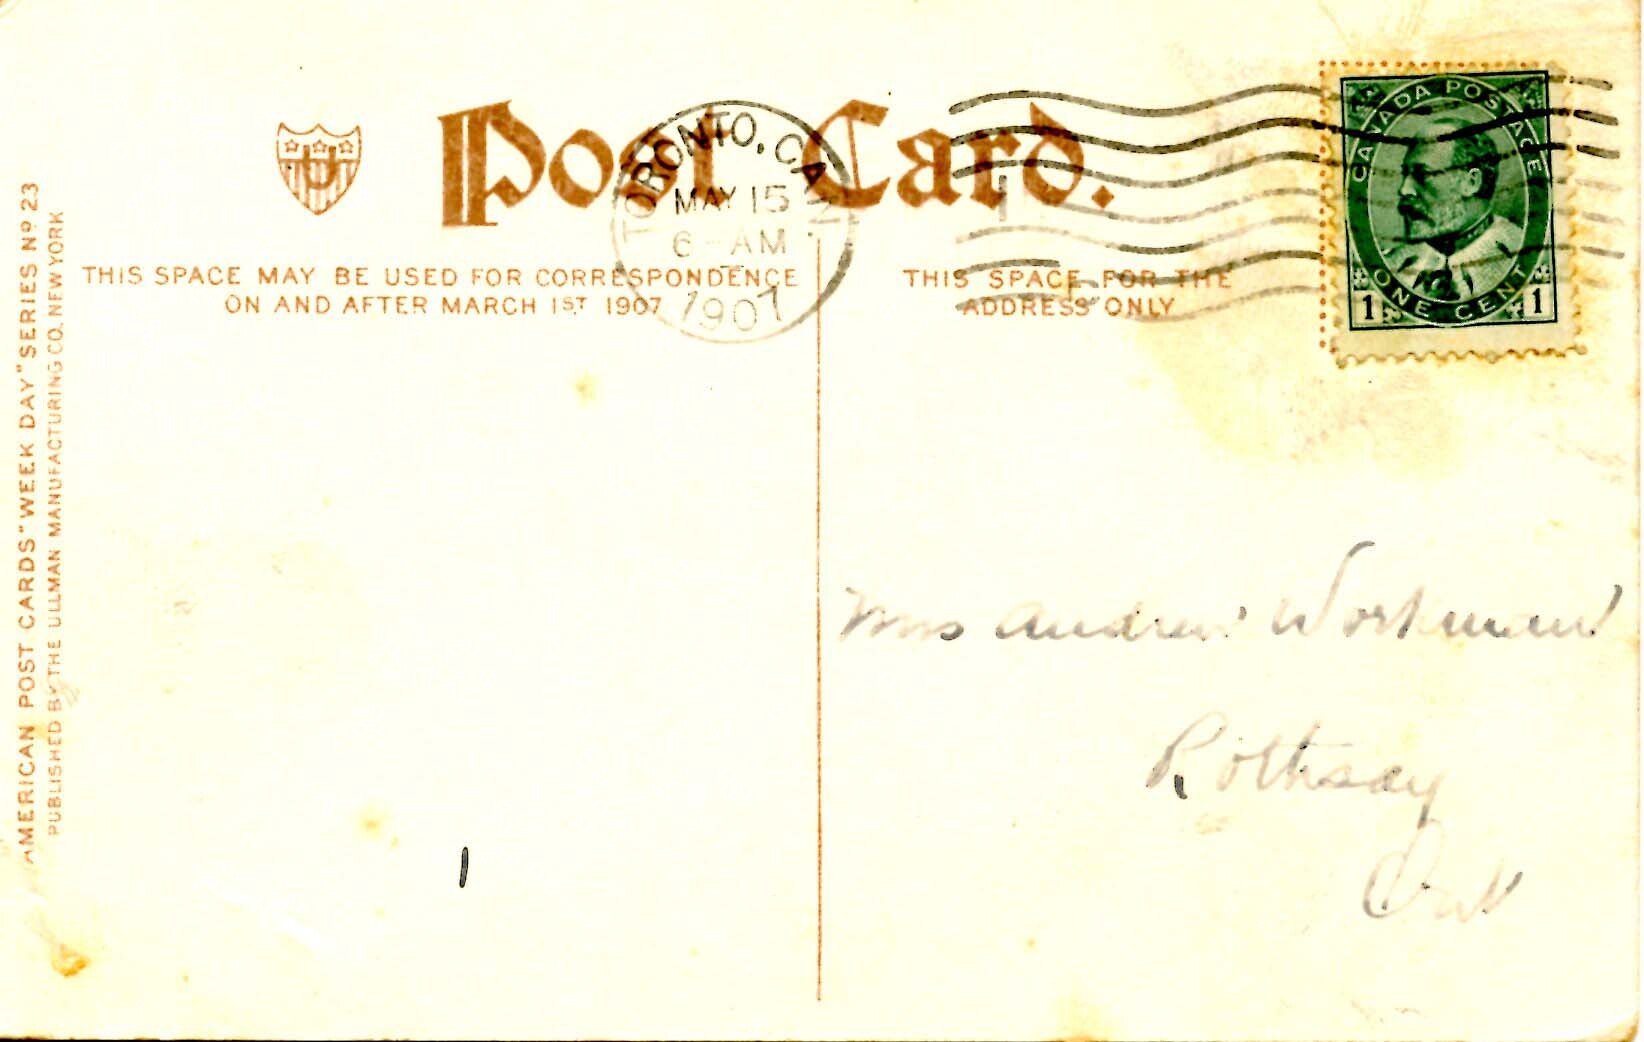 Post Card.
TORONTO, CAN.
MAY 15
6 - AM
1907
CANADA POSTAGE
ONE CENT
1 1
THIS SPACE MAY BE USED FOR CORRESPONDENCE
ON AND AFTER MARCH 1ST 1907
THIS SPACE FOR THE
ADDRESS ONLY
AMERICAN POST CARDS "WEEK DAY" SERIES No 23
PUBLISHED BY THE ULLMAN MANUFACTURING CO. NEW YORK
Mrs Andrew Workman
Rothsay
Ont